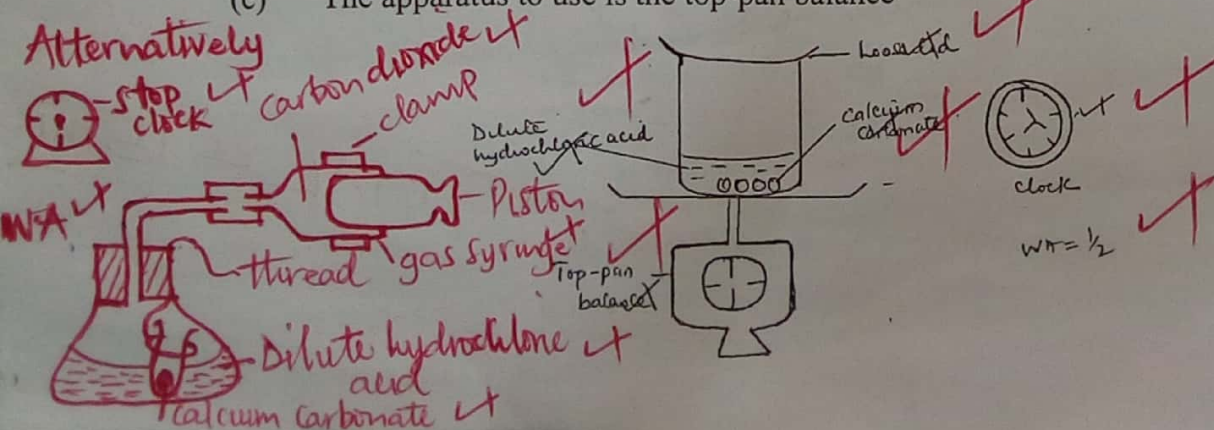 (c) The apparatus to use is the top pan balance
Alternatively
stop
clock
carbon dioxide
clamp
Piston
gas syringe
thread
WA
Dilute hydrochlone
acid
Calcium carbonate
Loose lid
Dilute
hydrochloric acid
calcium
carbonate
Top-pan
balance
clock
WA = ½